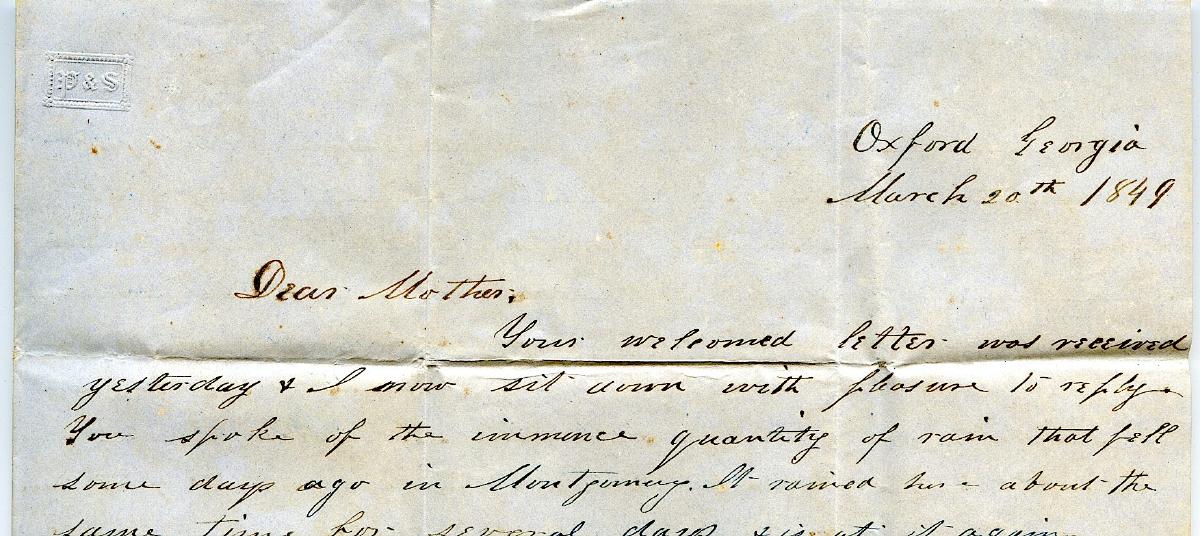 P & S
Oxford Georgia
March 20th 1849
Dear Mother,
Your welcomed letter was received
yesterday & I now sit down with pleasure to reply.
You spoke of the immence quantity of rain that fell
some days ago in Montgomery. It rained here about the
same time for several days & is at it again